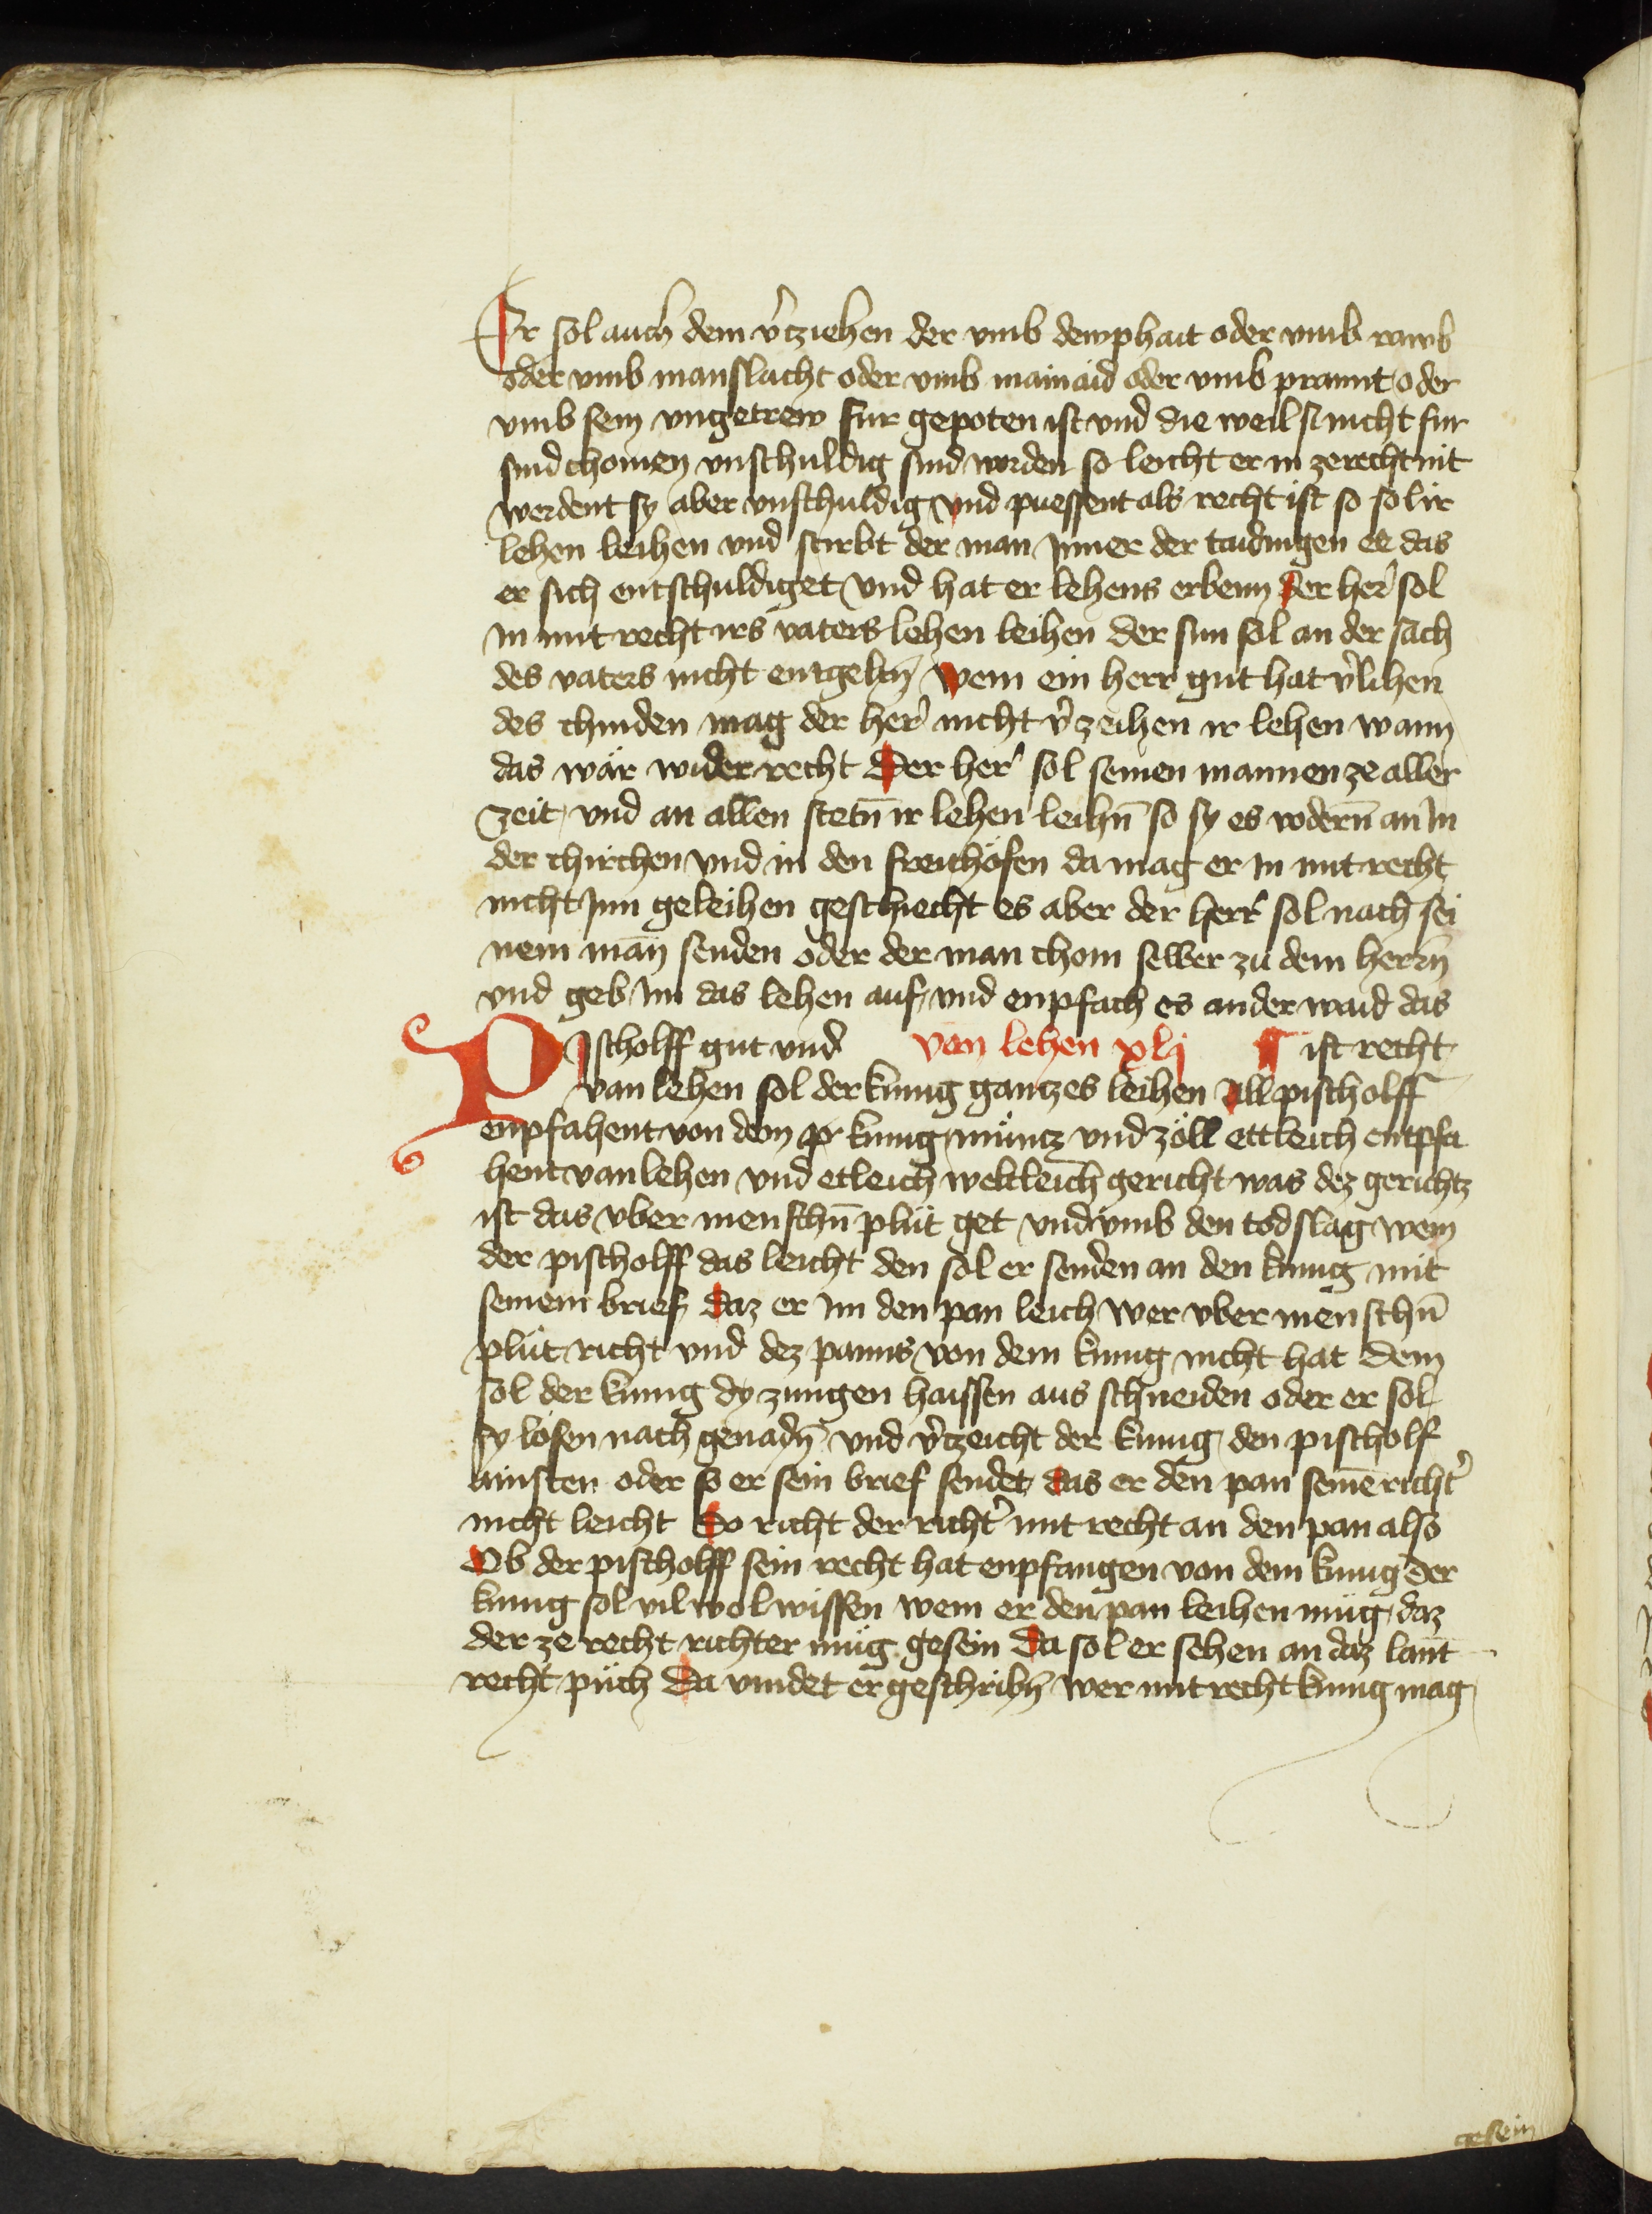 Er sol auch dem v̾tziehen der vmb dewphait oder vmb rawb
oder vmb manslacht oder vmb mainaid oder vmb prannt oder
vmb sein vngetrew fur gepoten ist vnd die weil si nicht fur
sind chomen vnschuldig sind worden so leicht er in ze recht nit
werdent sy aber vnschuldig vnd puessent als recht ist so sol ir
lehen leihen vnd stirbt der man Inner der taidingen ee das
er sich entschuldiget vnd hat er lehens erbenn der her̾ sol
In mit recht irs vaters lehen leihen der sun sol an der sach
des vaters nicht entgeltn̄ wem ein herr gut hat v̾lihen
des chinden mag der her̾ nicht v̾zeihen ir lehen wann
das wär wider recht Der her̾ sol seinen mannen ze aller
zeit vnd an allen stetn̄ ir lehen leihn̄ so sy es vodern̄ an In
der chirchen vnd in den freithöfen da mag er In mit recht
nicht Inn geleihen geschiecht es aber der herr̾ sol nach sei
nem man̄ senden oder der man chom selber zu dem herrn̄
vnd geb Im das lehen auf vnd enpfach es ander waid das
PIscholff gut vnd von lehen xlj ¶ ist recht
van lehen sol der kunig gantzes leihen All pischolff
enpfahent von dem kunig müntz vnd zöll ettleich entpfa
hent van lehen vnd etleich weltleich gericht was dez gerichtz
ist das vber menschn̄ plüt get vnd vmb den todslag wem
der pischolff das leicht den sol er senden an den kunig mit
seinem brief daz er im den pan leich wer vber menschn̄
plüt richt vnd dez panns von dem kunig nicht hat dem
sol der kunig dy zungen haissen aus schneiden oder er sol
sy losen nach genadn̄ vnd v̾tzeicht der kunig den pischolf
ainsten oder so er sein brief sendet das er den pan seinē richt̾
nicht leicht So richt der richt̾ mit recht an den pan also
Ob der pischolff sein recht hat enpfangen von dem kunig der
kunig sol vil wol wissen wem er den pan leihen müg daz
der ze recht richter müg gesein Da sol er sehen an daz lant
recht püch Da vindet er geschribn̄ wer mit recht kunig mag
gesein